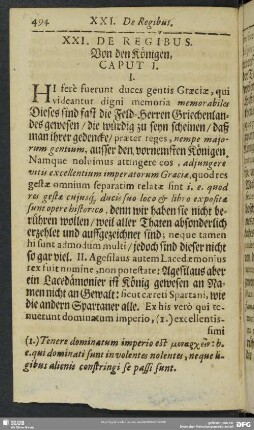 494 XXI. De Regibus.
XXI. DE REGIBUS.
Von den Königen,
CAPUT I.
I.
HI ferè fuerunt duces gentis Græciæ, qui
videantur digni memoria memorabiles
Dieses sind fast die Feld-Herren Griechenlan-
des gewesen / die würdig zu seyn scheinen / daß
man ihrer gedencke / præter reges, nempe majo-
rum gentium, ausser den vornemsten Königen.
Namque noluimus attingere eos, adjungere
vitis excellentium imperatorum Græciæ, quod res
gestæ omnium separatim relatæ sunt i. e. quod
res gestæ cujusq; ducis suo loco & libro expositæ
sunt opere historico, denn wir haben sie nicht be-
rühren wollen / weil aller Thaten absonderlich
erzehlet und auffgezeichnet sind: neque tamen
hi sunt admodum multi / jedoch sind dieser nicht
so gar viel. II. Agesilaus autem Lacedæmonius
rex fuit nomine, non potestate: Agesilaus aber
ein Lacedämonier ist König gewesen an Na-
men nicht an Gewalt: sicut cæteri Spartani, wie
die andern Spartaner alle. Ex his verò qui te-
nuerunt dominatum imperio, (1.) excellentis-
simi
(1.) Tenere dominatum imperio est h.
e. qui dominati sunt in volentes nolentes, neque l-
gibus alienis constringi se passi sunt.